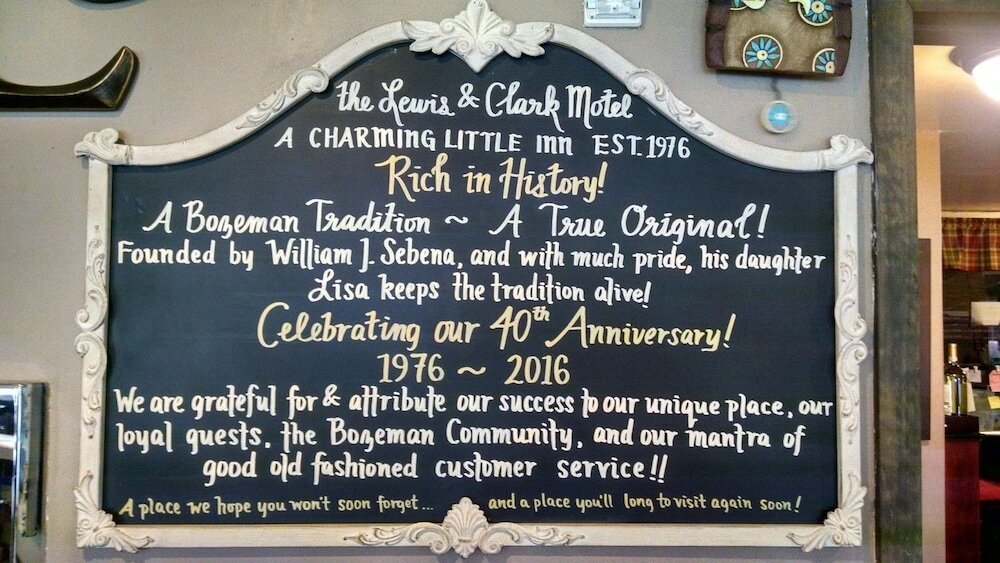 the Lewis & Clark Motel
A CHARMING LITTLE INN EST. 1976
Rich in History!
A Bozeman Tradition ~ A True Original!
Founded by William J. Sebena, and with much pride, his daughter
Lisa keeps the tradition alive!
Celebrating our 40th Anniversary!
1976 ~ 2016
We are grateful for & attribute our success to our unique place, our
loyal guests, the Bozeman Community, and our mantra of
good old fashioned customer service!!
A place we hope you won't soon forget... and a place you'll long to visit again soon!